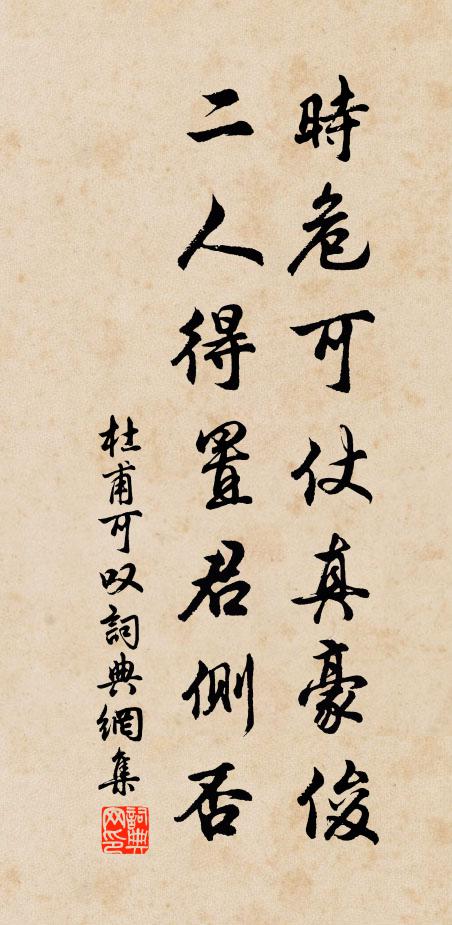 時危可仗真豪俊
二人得置君側否
杜甫可叹詞典網集
詞典
网印